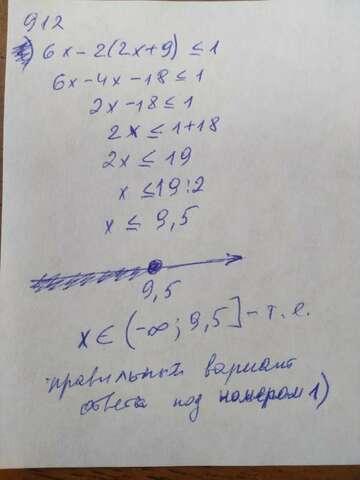 912
6x - 2(2x+9) ≤ 1
6x - 4x - 18 ≤ 1
2x - 18 ≤ 1
2x ≤ 1+18
2x ≤ 19
x ≤ 19:2
x ≤ 9,5
9,5
x ∈ (-∞; 9,5] - т.е.
правильный вариант
ответа под номером 1)